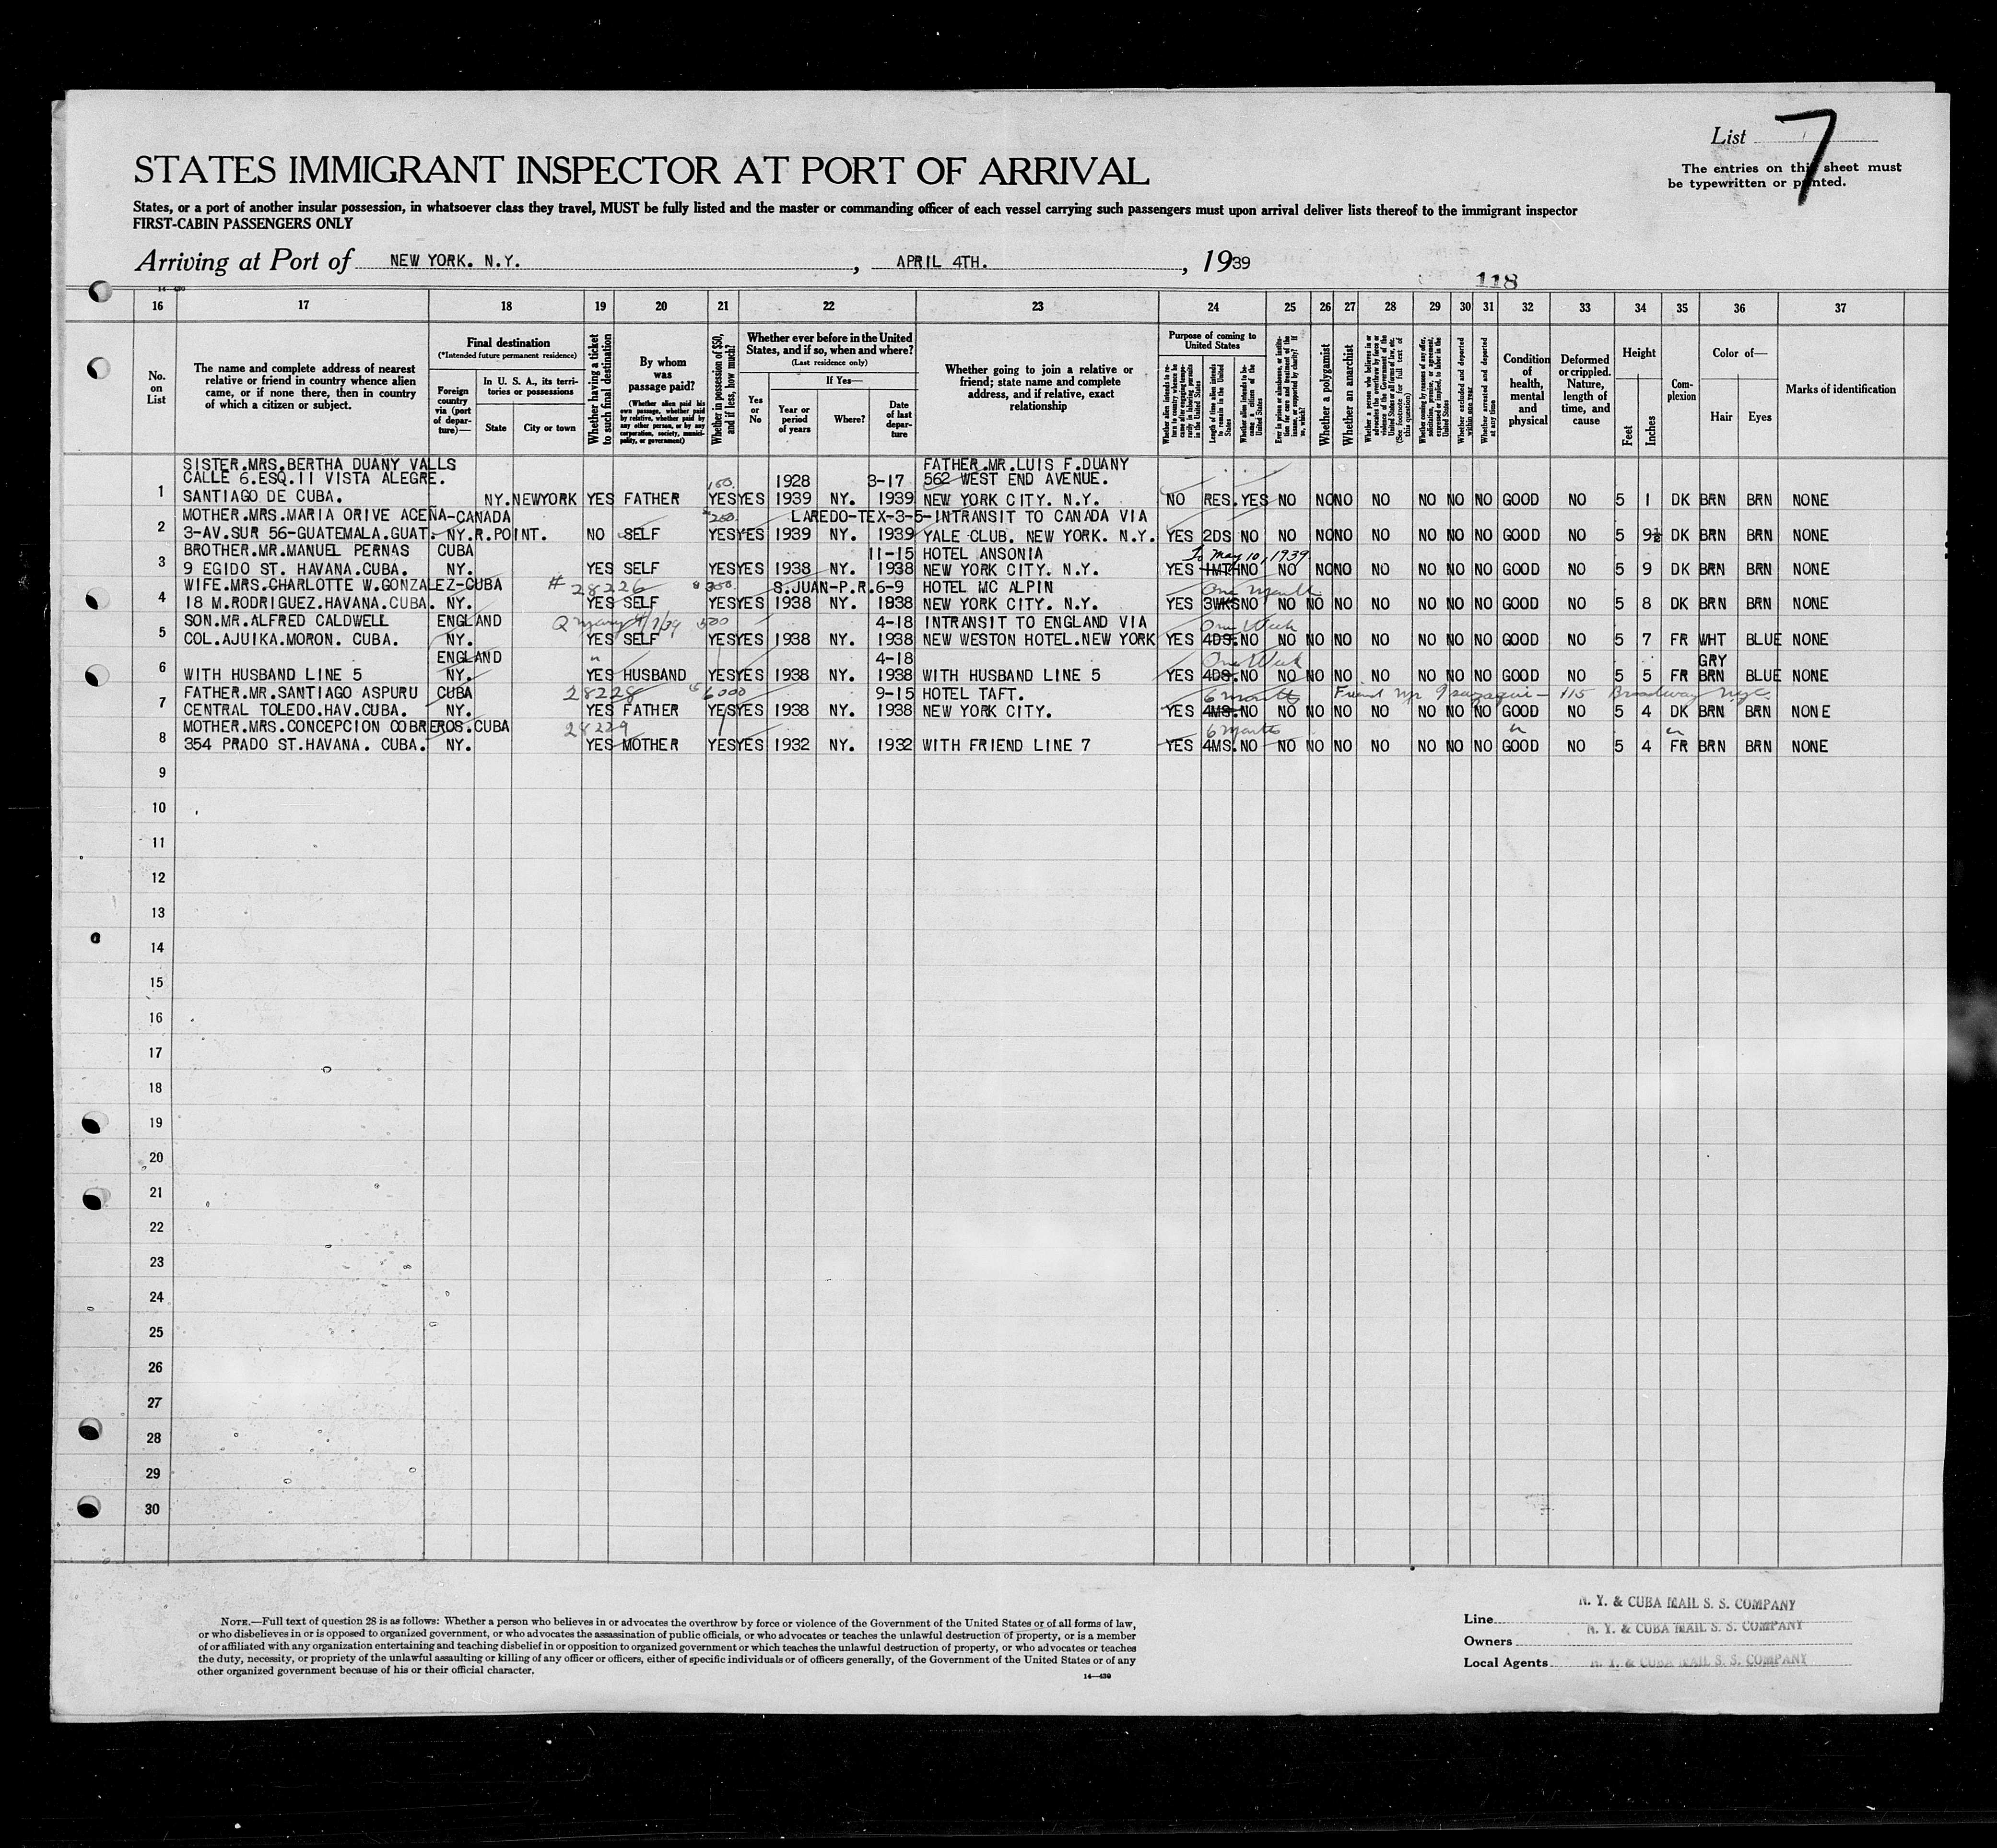 List 7
The entries on this sheet must
be typewritten or printed.
STATES IMMIGRANT INSPECTOR AT PORT OF ARRIVAL
States, or a port of another insular possession, in whatsoever class they travel, MUST be fully listed and the master or commanding officer of each vessel carrying such passengers must upon arrival deliver lists thereof to the immigrant inspector
FIRST-CABIN PASSENGERS ONLY
Arriving at Port of NEW YORK. N.Y. , APRIL 4TH. , 1939
118
16 17 18 19 20 21 22 23 24 25 26 27 28 29 30 31 32 33 34 35 36 37
No. on List
The name and complete address of nearest relative or friend in country whence alien came, or if none there, then in country of which a citizen or subject.
Final destination
(*Intended future permanent residence)
Foreign country via (port of departure)—
In U. S. A., its territories or possessions
State
City or town
Whether having a ticket to such final destination
By whom was passage paid?
(Whether alien paid his own passage, whether paid by relative, whether paid by any other person, or by any corporation, society, municipality, or government)
Whether in possession of $50, and if less, how much?
Whether ever before in the United States, and if so, when and where?
(Last residence only)
Yes or No
If Yes—
Year or period of years
Where?
Date of last departure
Whether going to join a relative or friend; state name and complete address, and if relative, exact relationship
Purpose of coming to United States
Length of time alien intends to remain in the United States
Whether alien intends to become a citizen of the United States
Whether a polygamist
Whether an anarchist
Whether excluded and deported within one year
Whether arrested and deported at any time
Condition of health, mental and physical
Deformed or crippled. Nature, length of time, and cause
Height
Feet
Inches
Complexion
Color of—
Hair
Eyes
Marks of identification
SISTER.MRS.BERTHA DUANY VALLS FATHER.MR.LUIS F.DUANY
CALLE 6.ESQ.11 VISTA ALEGRE. 1928 3-17 562 WEST END AVENUE.
1 SANTIAGO DE CUBA. NY.NEWYORK YES FATHER YES YES 1939 NY. 1939 NEW YORK CITY. N.Y. NO RES. YES NO NO NO NO NO NO NO GOOD NO 5 1 DK BRN BRN NONE
MOTHER.MRS.MARIA ORIVE ACEÑA-CANADA 250 LAREDO-TEX-3-5-INTRANSIT TO CANADA VIA
2 3-AV.SUR 56-GUATEMALA.GUAT. NY.R.POINT. NO SELF YES YES 1939 NY. 1939 YALE CLUB. NEW YORK. N.Y. YES 2DS NO NO NO NO NO NO NO NO GOOD NO 5 9½ DK BRN BRN NONE
BROTHER.MR.MANUEL PERNAS CUBA 11-15 HOTEL ANSONIA To May 10, 1939
3 9 EGIDO ST. HAVANA.CUBA. NY. YES SELF YES YES 1938 NY. 1938 NEW YORK CITY. N.Y. YES 1MTH NO NO NO NO NO NO NO NO GOOD NO 5 9 DK BRN BRN NONE
WIFE.MRS.CHARLOTTE W.GONZALEZ-CUBA # 28226 S.JUAN-P.R. 6-9 HOTEL MC ALPIN One month
4 18 M.RODRIGUEZ.HAVANA.CUBA. NY. YES SELF YES YES 1938 NY. 1938 NEW YORK CITY. N.Y. YES 3WKS NO NO NO NO NO NO NO NO GOOD NO 5 8 DK BRN BRN NONE
SON.MR.ALFRED CALDWELL ENGLAND Q Mary 4/7/39 500 4-18 INTRANSIT TO ENGLAND VIA One Week
5 COL.AJUIKA.MORON. CUBA. NY. YES SELF YES YES 1938 NY. 1938 NEW WESTON HOTEL.NEW YORK YES 4DS. NO NO NO NO NO NO NO NO GOOD NO 5 7 FR WHT BLUE NONE
ENGLAND " 4-18 One Week GRY
6 WITH HUSBAND LINE 5 NY. YES HUSBAND YES YES 1938 NY. 1938 WITH HUSBAND LINE 5 YES 4DS. NO NO NO NO NO NO NO NO GOOD NO 5 5 FR BRN BLUE NONE
FATHER.MR.SANTIAGO ASPURU CUBA 28228 6000 9-15 HOTEL TAFT. 6 months Friend Mr 115 Broadway NYC.
7 CENTRAL TOLEDO.HAV.CUBA. NY. YES FATHER YES YES 1938 NY. 1938 NEW YORK CITY. YES 4MS. NO NO NO NO NO NO NO NO GOOD NO 5 4 DK BRN BRN NONE
MOTHER.MRS.CONCEPCION COBREROS.CUBA 28229 6 months
8 354 PRADO ST.HAVANA. CUBA. NY. YES MOTHER YES YES 1932 NY. 1932 WITH FRIEND LINE 7 YES 4MS. NO NO NO NO NO NO NO NO GOOD NO 5 4 FR BRN BRN NONE
9
10
11
12
13
14
15
16
17
18
19
20
21
22
23
24
25
26
27
28
29
30
NOTE.—Full text of question 28 is as follows: Whether a person who believes in or advocates the overthrow by force or violence of the Government of the United States or of all forms of law,
or who disbelieves in or is opposed to organized government, or who advocates the assassination of public officials, or who advocates or teaches the unlawful destruction of property, or is a member
of or affiliated with any organization entertaining and teaching disbelief in or opposition to organized government or which teaches the unlawful destruction of property, or who advocates or teaches
the duty, necessity, or propriety of the unlawful assaulting or killing of any officer or officers, either of specific individuals or of officers generally, of the Government of the United States or of any
other organized government because of his or their official character.
14—430
Line N. Y. & CUBA MAIL S. S. COMPANY
Owners N. Y. & CUBA MAIL S. S. COMPANY
Local Agents N. Y. & CUBA MAIL S. S. COMPANY